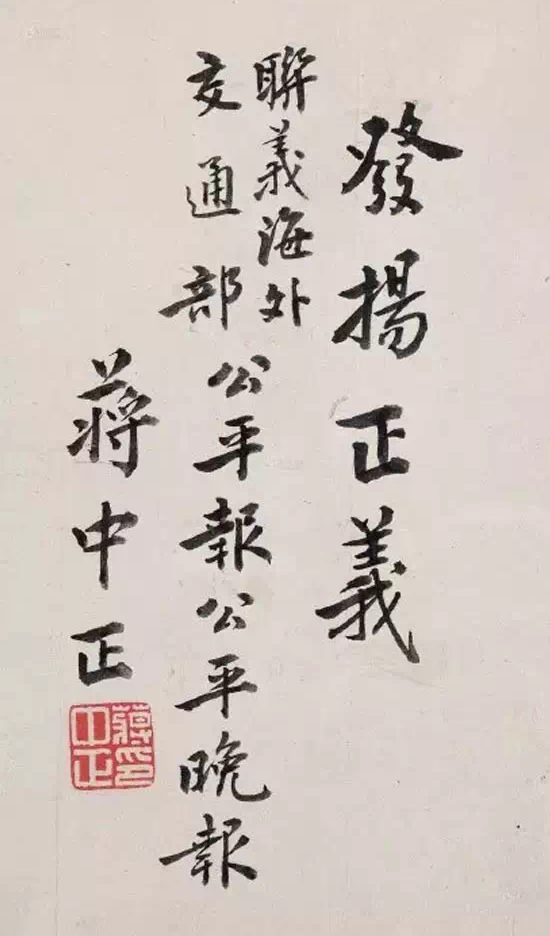 發揚正義
聯義海外
交通部
公平報公平晚報
蔣中正
蔣中正印